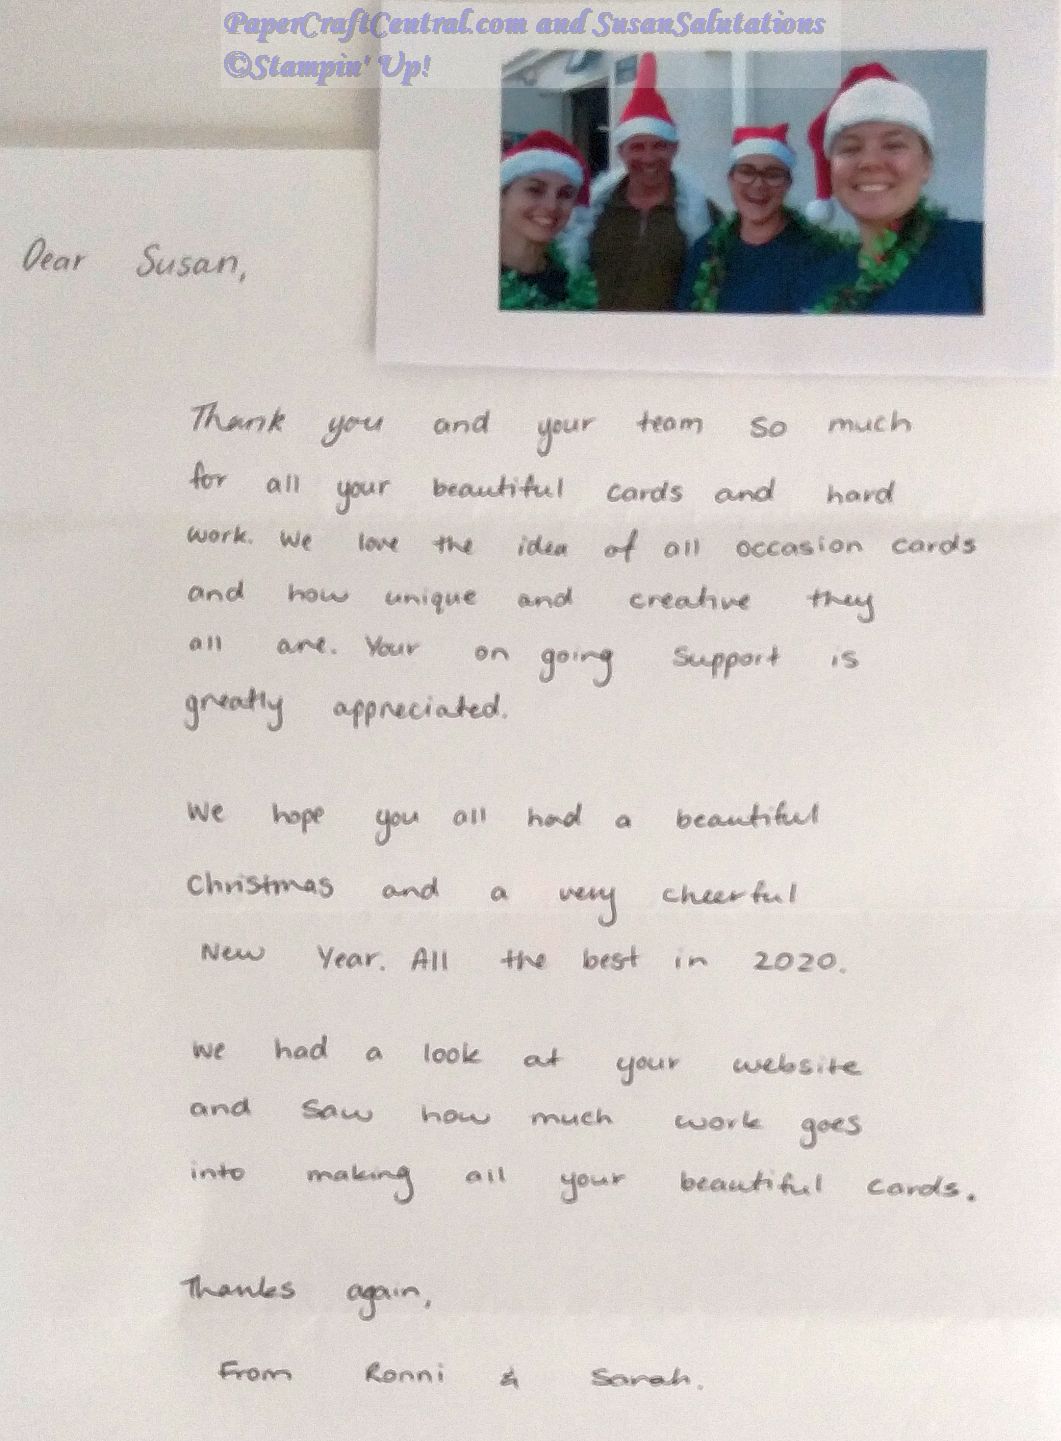 PaperCraftCentral.com and SusanSalutations
©Stampin' Up!
Dear Susan,
Thank you and your team so much
for all your beautiful cards and hard
work. We love the idea of all occasion cards
and how unique and creative they
all are. Your on going support is
greatly appreciated.
We hope you all had a beautiful
Christmas and a very cheerful
New Year. All the best in 2020.
We had a look at your website
and saw how much work goes
into making all your beautiful cards.
Thanks again,
From Ronni & Sarah.